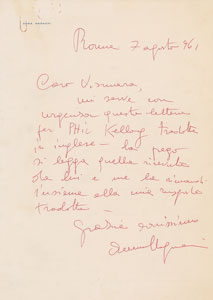 Roma 7 agosto 961
Caro Vismara,
mi serve con
urgenza questa lettera
per Phil Kellogg tradotta
in inglese – La prego
si legga quella ricevuta
da lui e me la rimandi
insieme alla mia risposta
tradotta –
Grazie